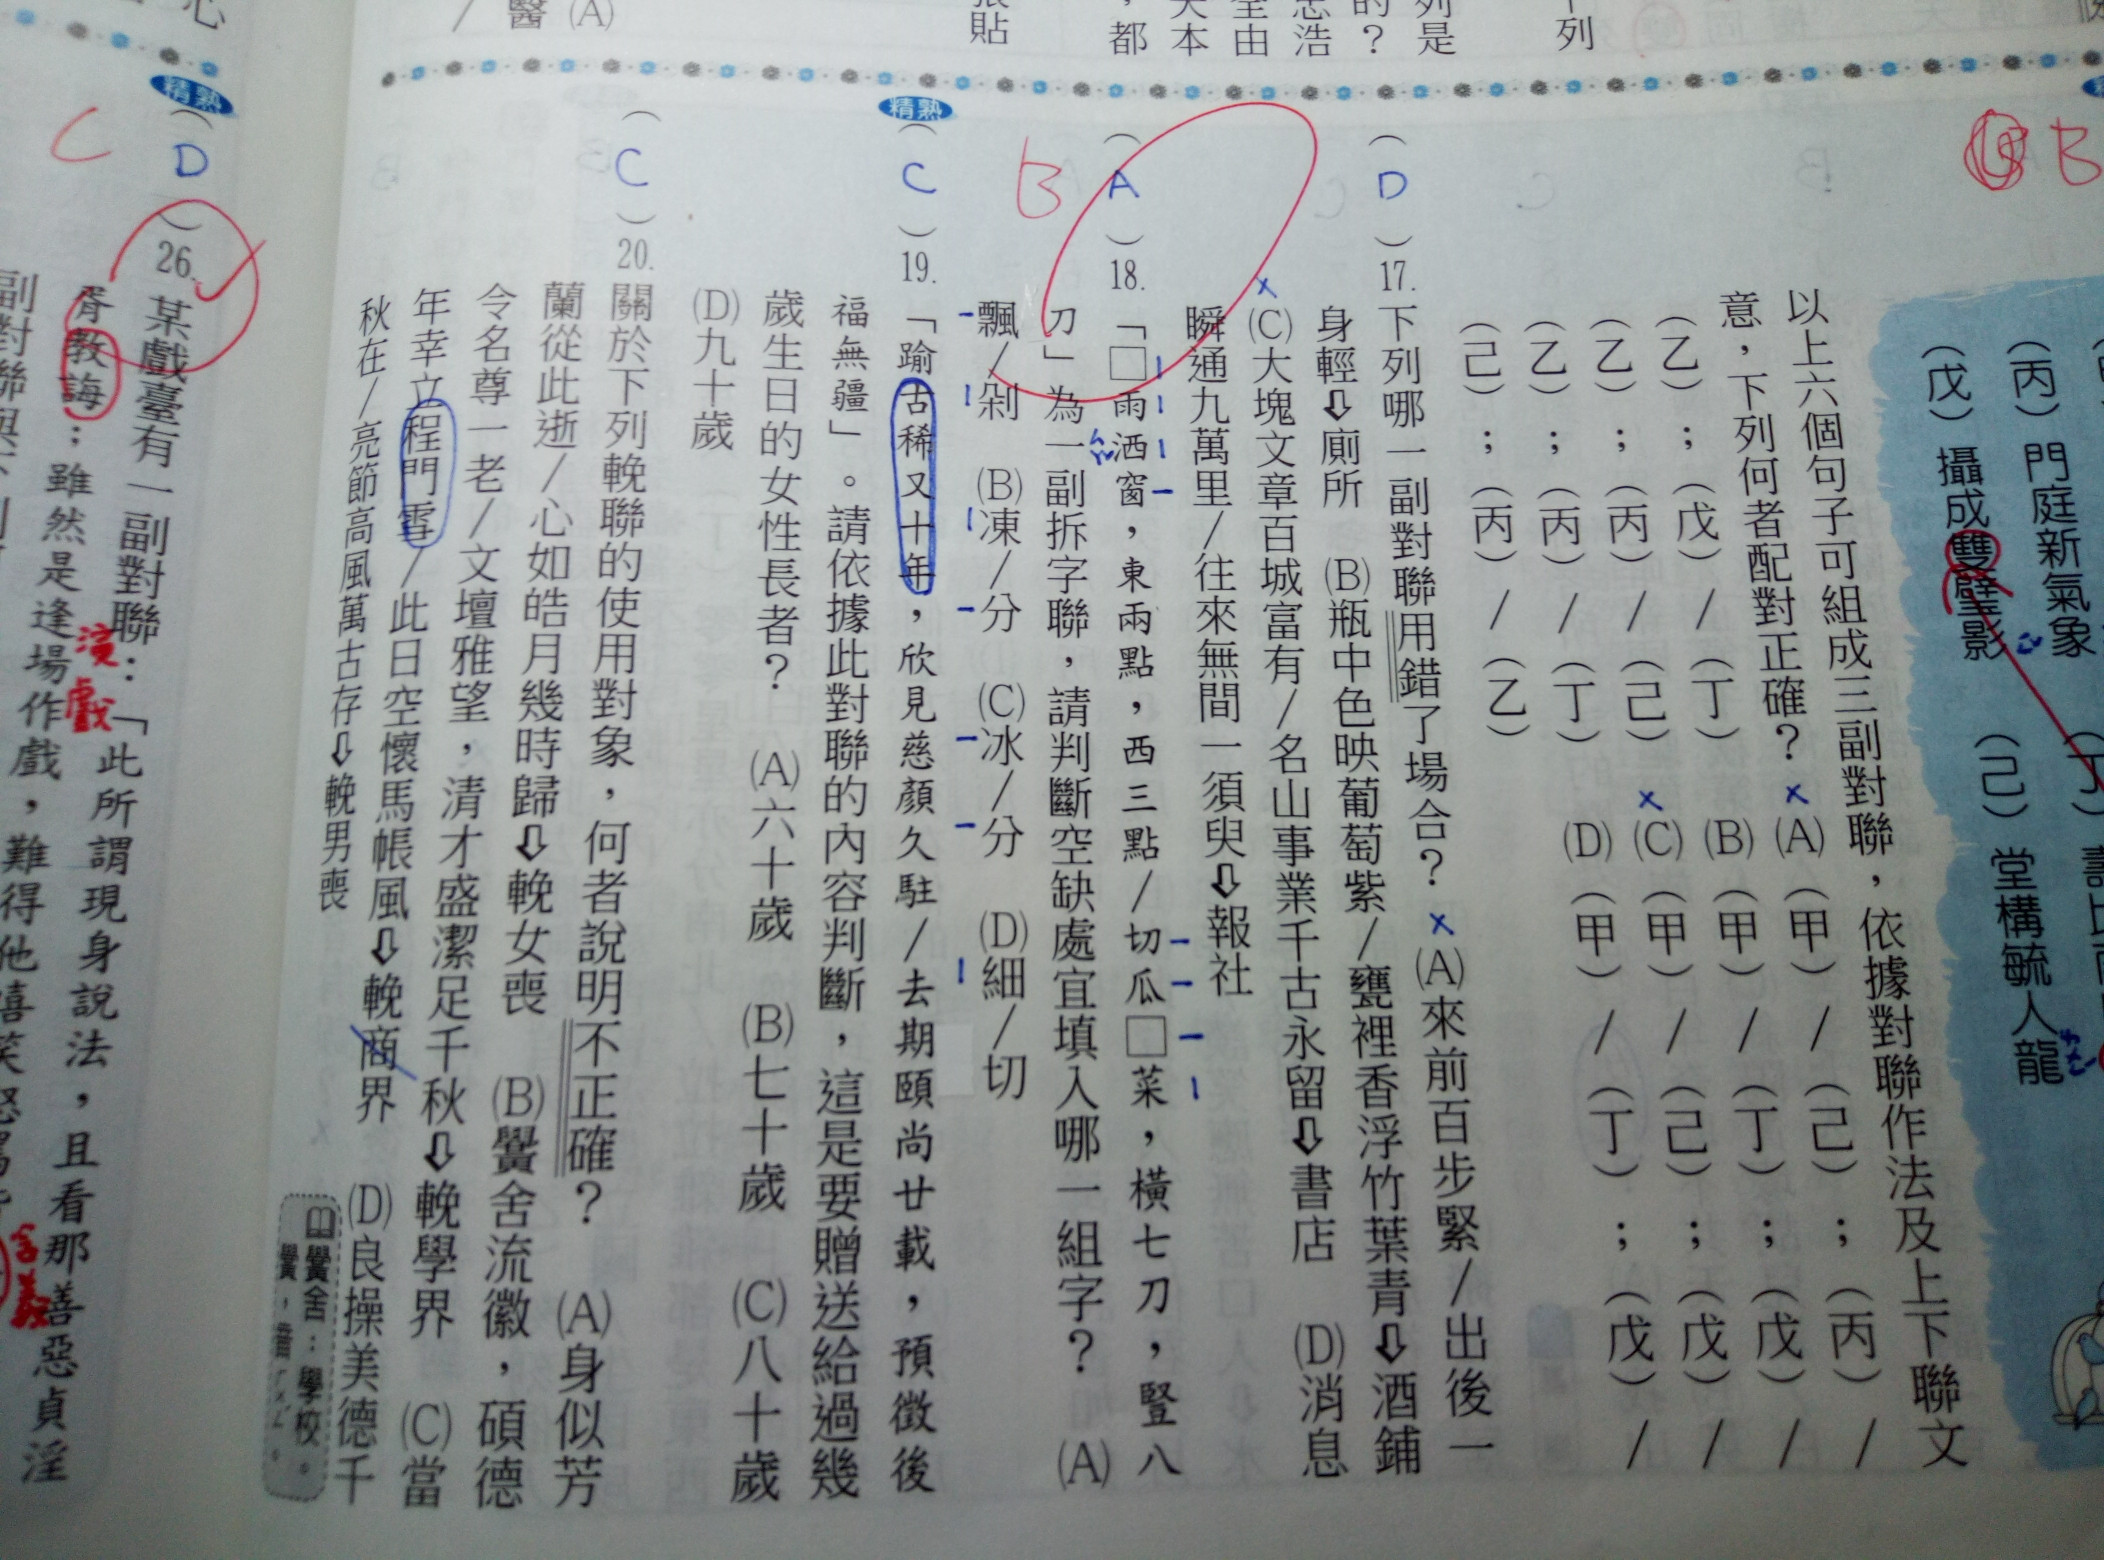 （戊）攝成雙璧影　（己）堂構毓人龍
以上六個句子可組成三副對聯，依據對聯作法及上下聯文
意，下列何者配對正確？　(A)（甲）／（己）；（丙）／
（乙）；（戊）／（丁）　(B)（甲）／（丁）；（戊）／
（乙）；（丙）／（己）　(C)（甲）／（己）；（戊）／
（乙）；（丙）／（丁）　(D)（甲）／（丁）；（戊）／
（己）；（丙）／（乙）
（D）17.下列哪一副對聯用錯了場合？　(A)來前百步緊／出後一
身輕⇩廁所　(B)瓶中色映葡萄紫／甕裡香浮竹葉青⇩酒鋪
(C)大塊文章百城富有／名山事業千古永留⇩書店　(D)消息
瞬通九萬里／往來無間一須臾⇩報社
B（A）18.「□雨洒窗，東兩點，西三點／切瓜□菜，橫七刀，豎八
刀」為一副拆字聯，請判斷空缺處宜填入哪一組字？　(A)
飄／剁　(B)凍／分　(C)冰／分　(D)細／切
精熟
（C）19.「踰古稀又十年，欣見慈顏久駐／去期頤尚廿載，預徵後
福無疆」。請依據此對聯的內容判斷，這是要贈送給過幾
歲生日的女性長者？　(A)六十歲　(B)七十歲　(C)八十歲
(D)九十歲
（C）20.關於下列輓聯的使用對象，何者說明不正確？　(A)身似芳
蘭從此逝／心如皓月幾時歸⇩輓女喪　(B)黌舍流徽，碩德
令名尊一老／文壇雅望，清才盛潔足千秋⇩輓學界　(C)當
年幸立程門雪／此日空懷馬帳風⇩輓商界　(D)良操美德千
秋在／亮節高風萬古存⇩輓男喪
黌舍：學校。
黌，音ㄏㄨㄥˊ。
精熟
C（D）26.某戲臺有一副對聯：「此所謂現身說法，且看那善惡貞淫
胥教誨；雖然是逢場作戲，難得他嘻笑怒罵
演戲
含義